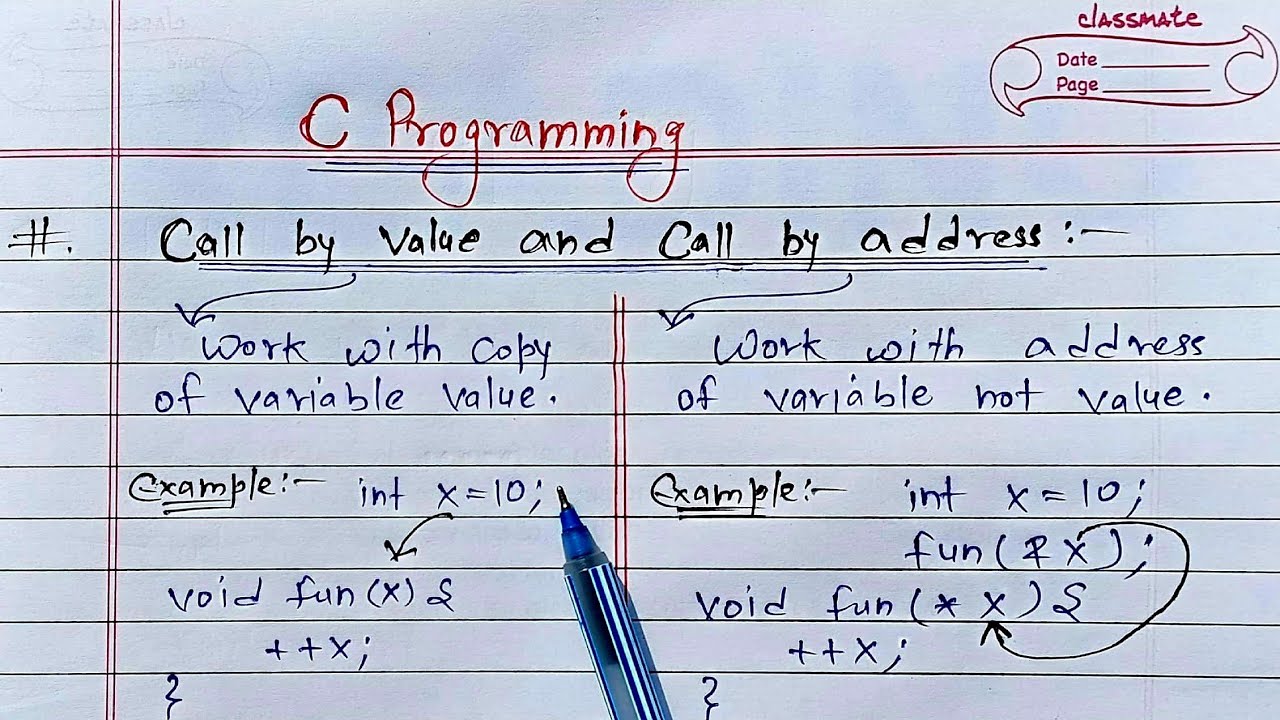 classmate
Date
Page
C Programming
#. Call by value and Call by address :-
Work with copy
of variable value.
Example:- int x=10;
void fun(x){
++x;
}
Work with address
of variable not value.
Example:- int x=10;
fun(&x);
void fun(* x){
++x;
}